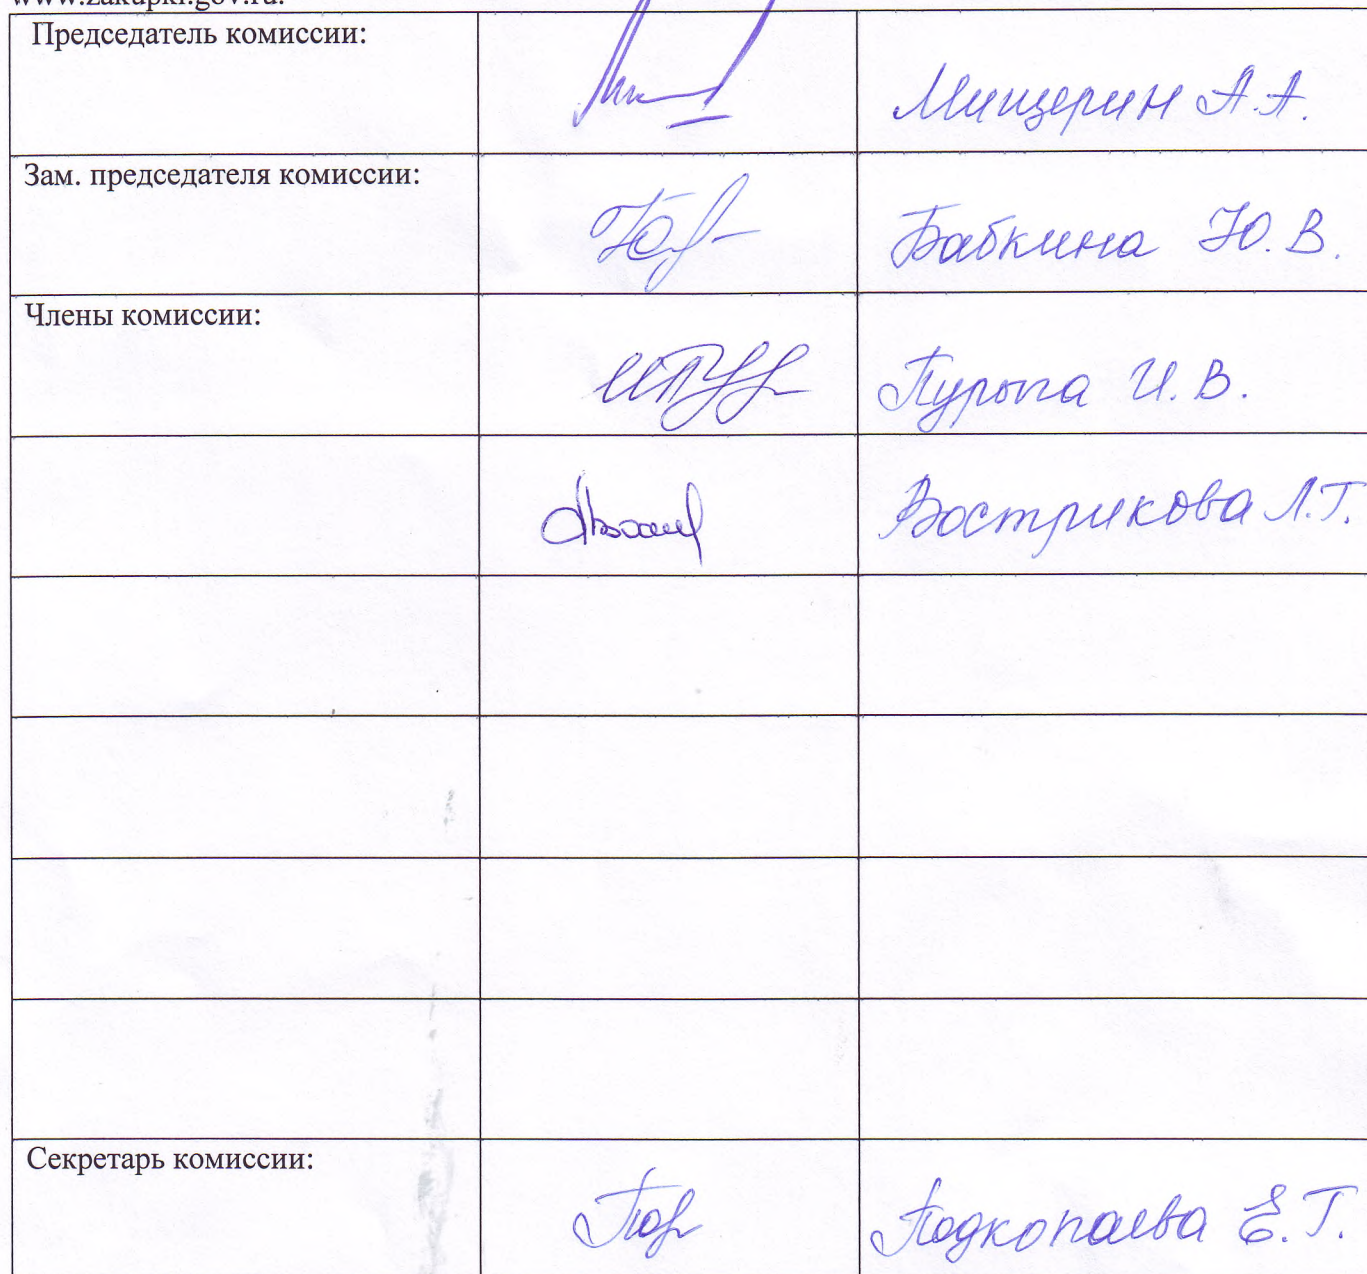 www.zakupki.gov.ru.
Председатель комиссии:
Мищерин А.А.
Зам. председателя комиссии:
Бабкина Ю.В.
Члены комиссии:
Пурыга И.В.
Вострикова Л.Г.
Секретарь комиссии:
Подкопаева Е.Г.